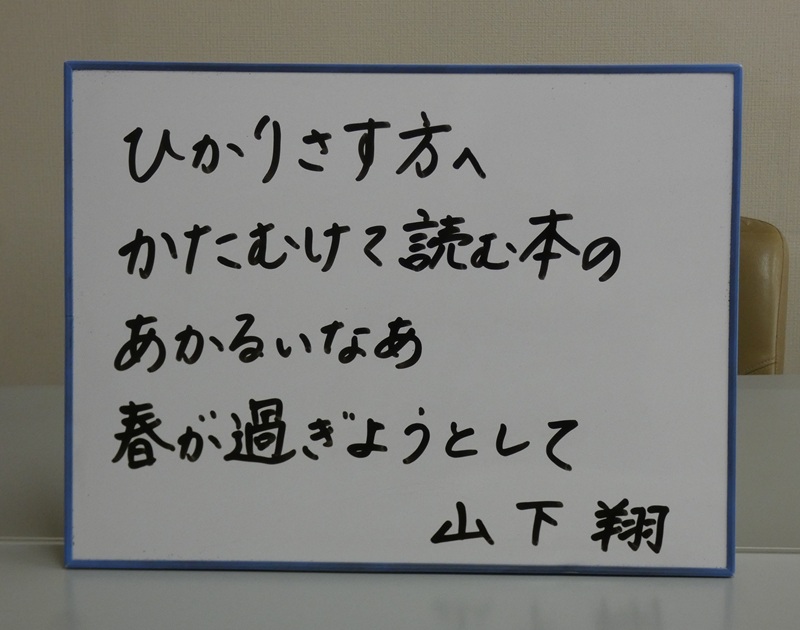 ひかりさす方へ
かたむけて読む本の
あかるいなあ
春が過ぎようとして
山下 翔